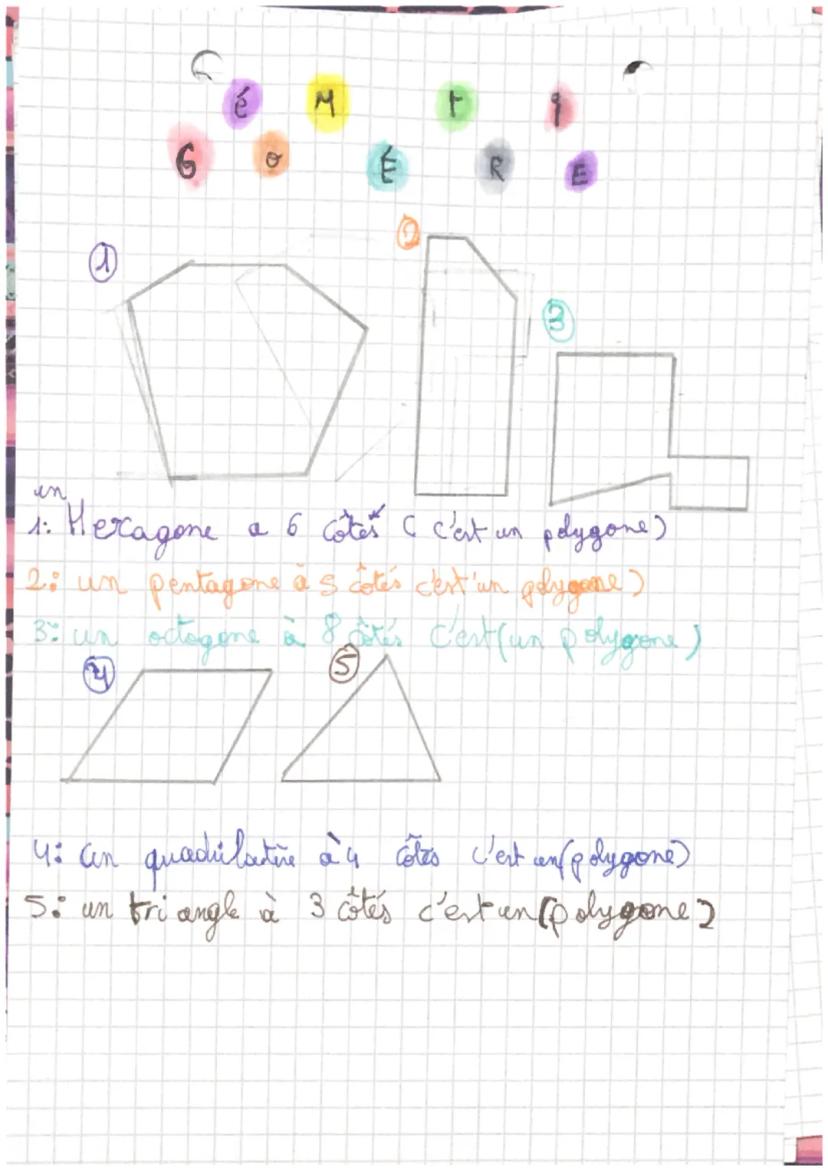 é M t i
G o É R E
1 2 3
un
1: Hexagone a 6 côtés (c'est un polygone)
2: un pentagone à 5 côtés c'est'un polygone)
3: un octogone à 8 côtés c'est(un polygone)
4 5
4: un quadrilatère à 4 côtés c'est un(polygone)
5: un triangle à 3 côtés c'est un(polygone)